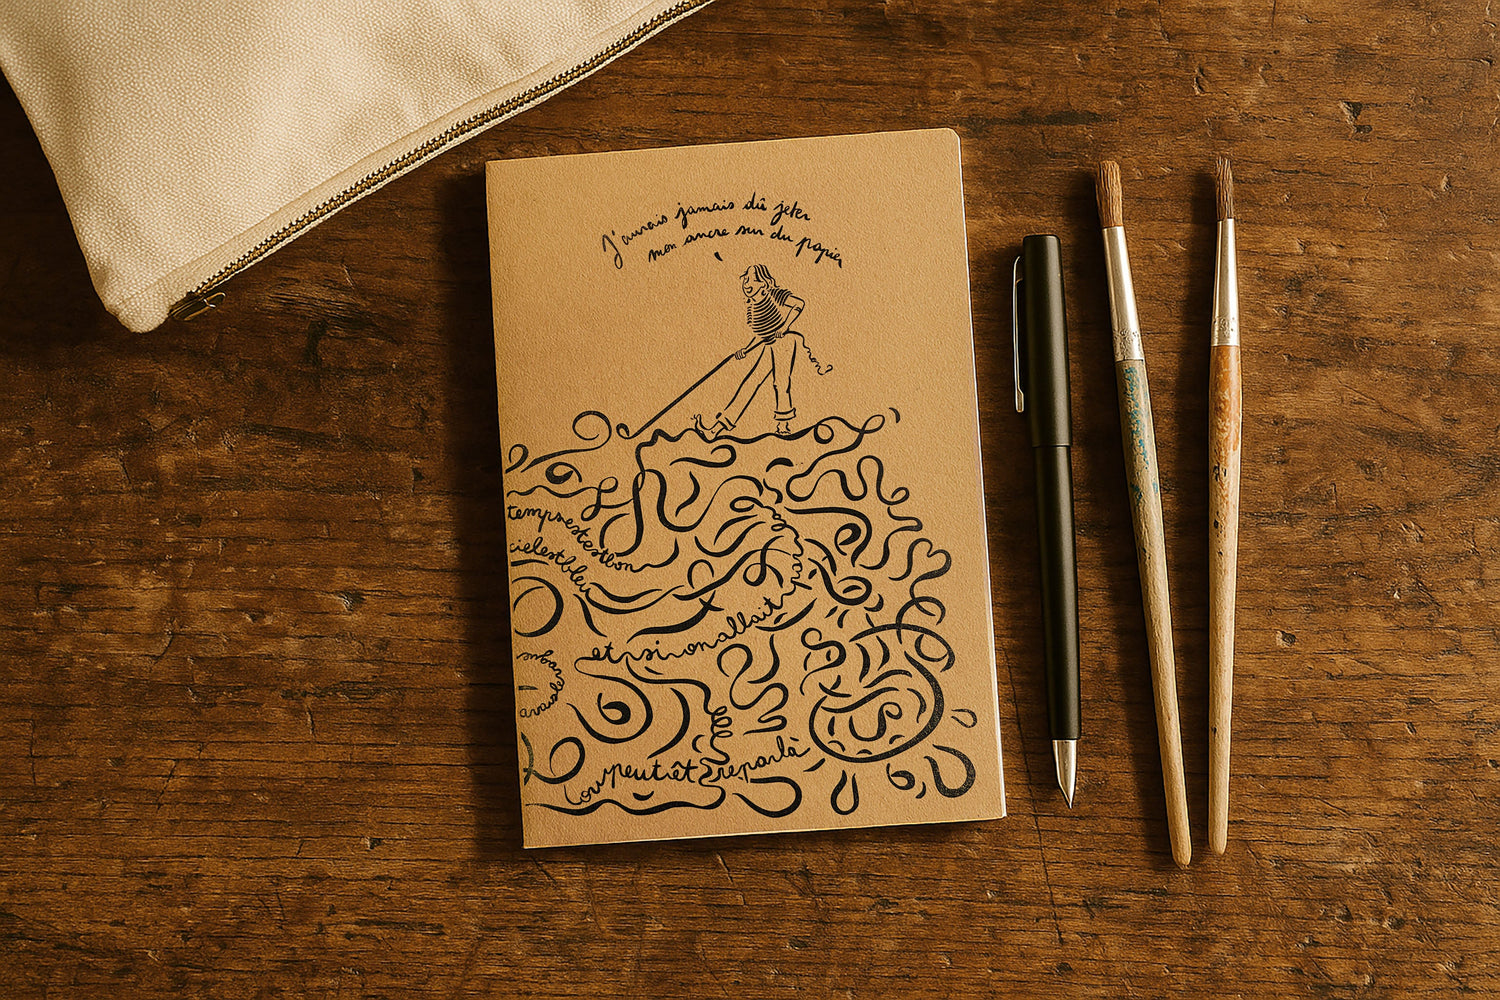 J'aurais jamais dû jeter
mon ancre sur du papier
non?
temps est est bon
ciel est bleu
et si on allait
peut êt repar là